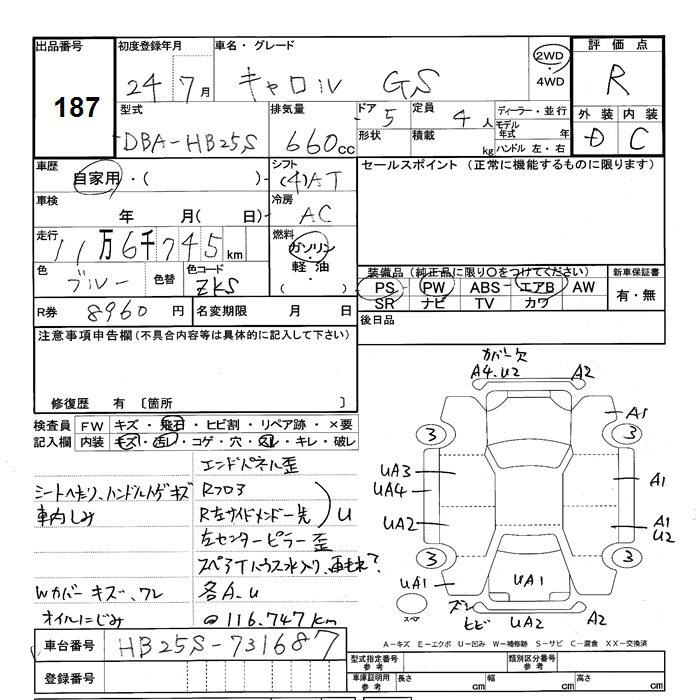 出品番号 初度登録年月 車名・グレード 評価点
187 24 7月 キャロル GS 2WD・4WD R
型式 排気量 ドア 5 定員 4人 ディーラー・並行 外装 内装
DBA-HB25S 660cc 形状 積載 kg モデル年式 年 D C
ハンドル 左・右
車歴 シフト セールスポイント (正常に機能するものに限ります)
自家用・( ) (4)AT
車検 冷房
年 月( 日) AC
走行 燃料
11万6千745km ガソリン・軽油・( )
色 色替 色コード 装備品 (純正品に限り○をつけてください) 新車保証書
ブルー ZKS PS PW ABS エアB AW 有・無
SR ナビ TV カワ
R券 8960円 名変期限 月 日 後日品
注意事項申告欄 (不具合内容等は具体的に記入して下さい)
修復歴 有 〔箇所 〕
検査員記入欄 FW キズ・飛石・ヒビ割・リペア跡・×要
内装 キズ・汚レ・コゲ・穴・スレ・キレ・破レ
エンドパネル歪
シートへたり、ハンドルトゲキズ Rフロア
車内しみ R左サイドメンバー先 U
左センターピラー歪
スペアTハウス水入り、再モレ?
Wカバーキズ、ワレ 各A.U
オイルにじみ @116.747km
カバー欠
A4.U2 A2
A1
3 3
UA3
UA4 A1
UA2 A1
U2
3 3
UA1 UA1
スペア ズレ
ヒビ UA2 A2
車台番号 HB25S-731687
登録番号
A−キズ E−エクボ U−凹み W−補修跡 S−サビ C−腐食 XX−交換済
型式指定番号 参考 類別区分番号 参考
車庫証明用 参考 長さ cm 幅 cm 高さ cm